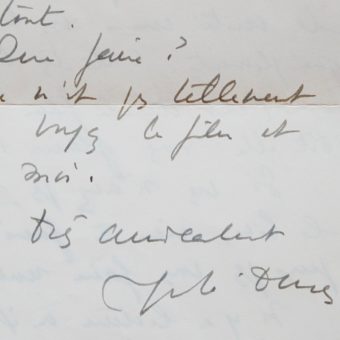 tout.
Que faire ?
n'est pas tellement
le film et
moi.
Très amicalement